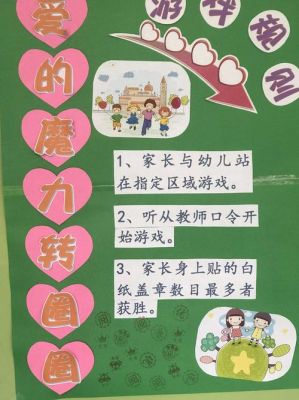 爱的魔力转圈圈
游戏规则
1、家长与幼儿站
在指定区域游戏。
2、听从教师口令开
始游戏。
3、家长身上贴的白
纸盖章数目最多者
获胜。